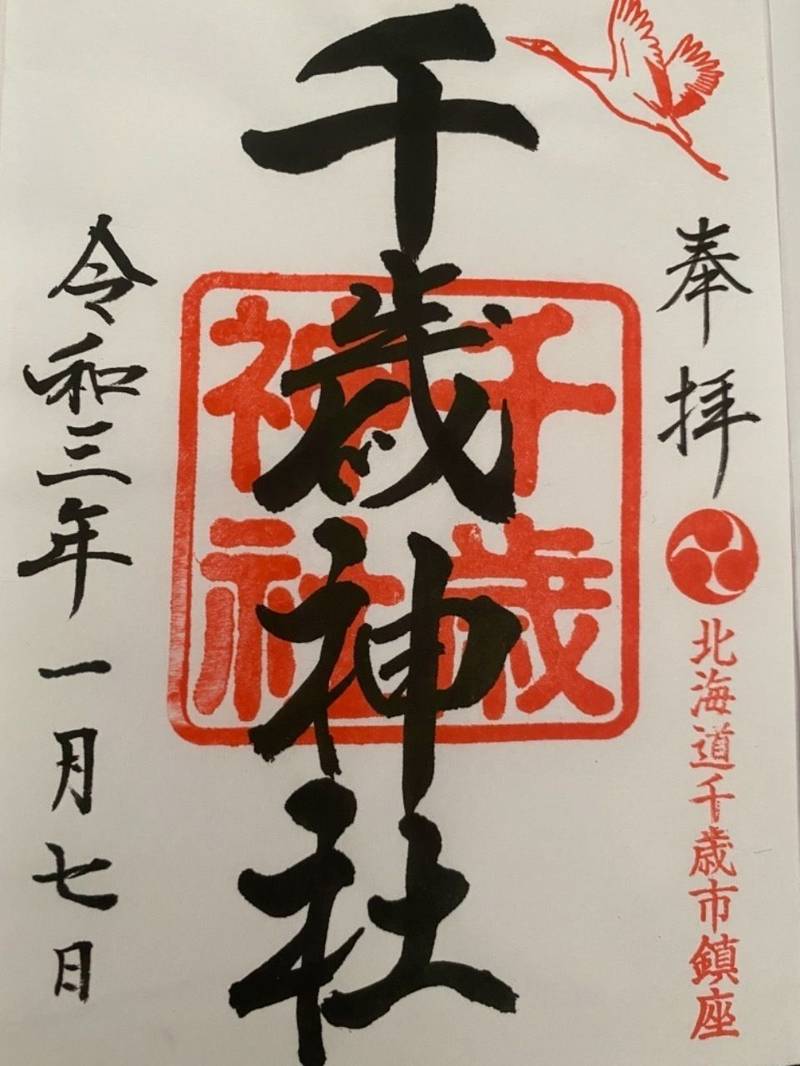 奉拝
北海道千歳市鎮座
千歳神社
千歳
神社
令和三年一月七日